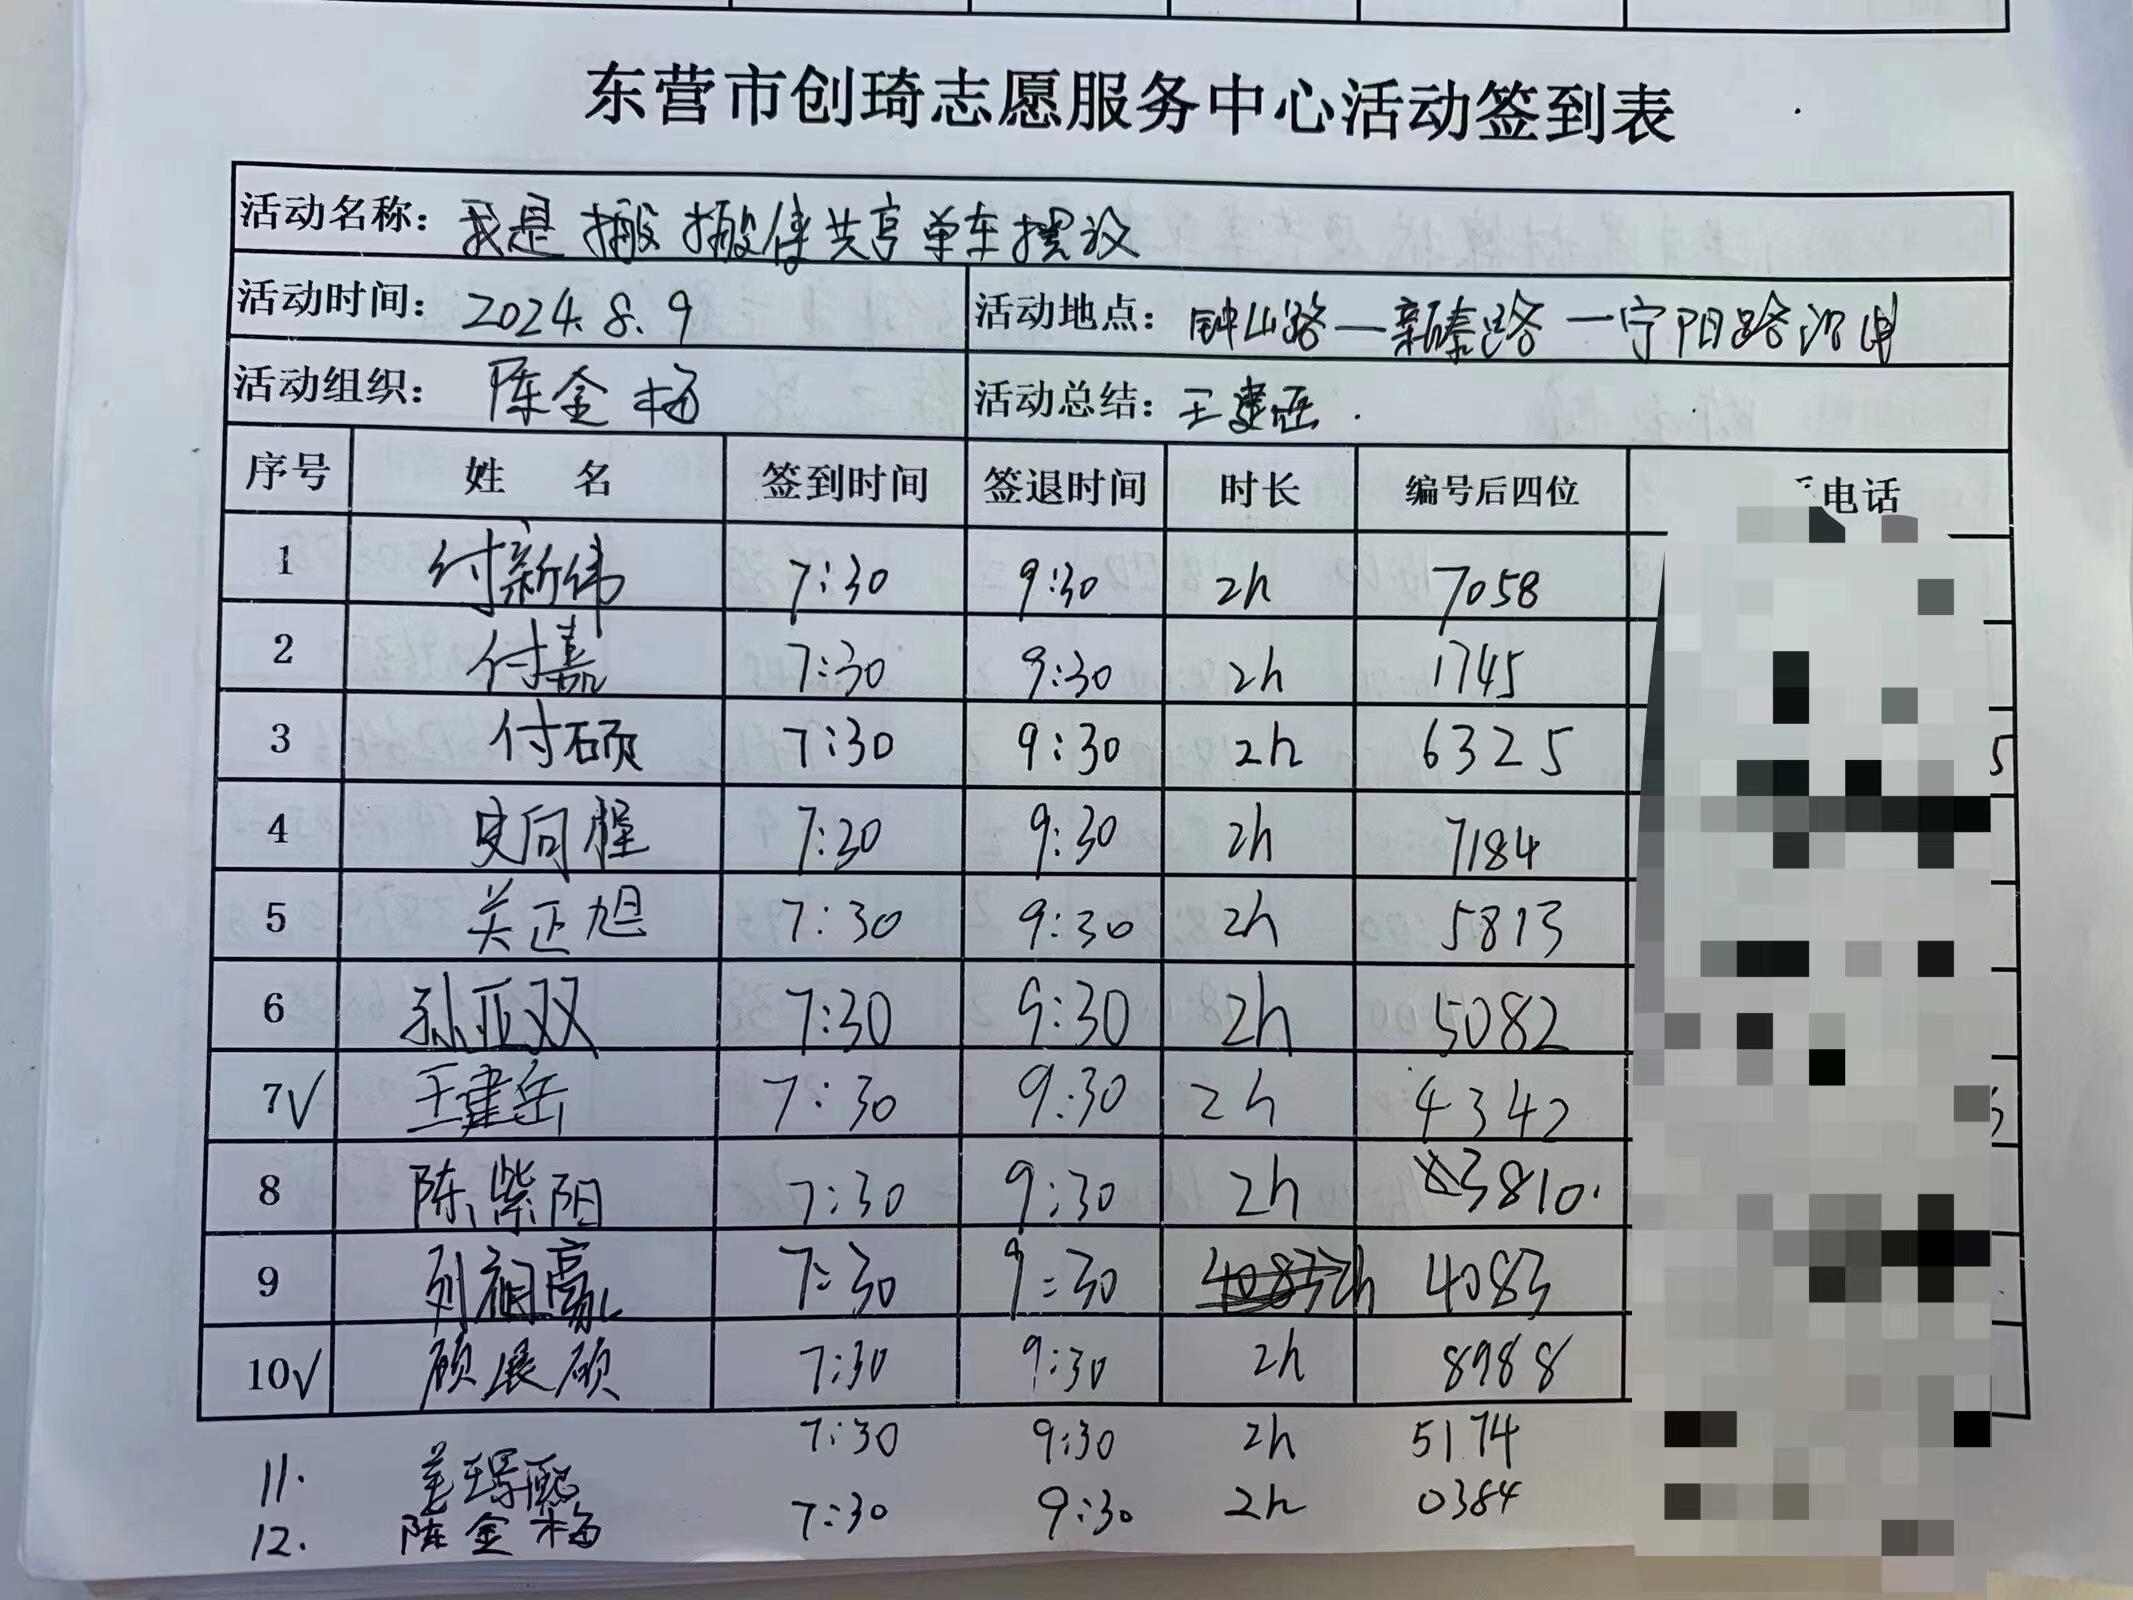 东营市创琦志愿服务中心活动签到表
活动名称：我是搬搬侠共享单车摆放
活动时间：2024.8.9 活动地点：钟山路—新泰路—宁阳路沿线
活动组织：陈金梅 活动总结：王建岳.
序号 姓 名 签到时间 签退时间 时长 编号后四位 电话
1 付新伟 7:30 9:30 2h 7058
2 付嘉 7:30 9:30 2h 1745
3 付硕 7:30 9:30 2h 6325 5
4 史向程 7:30 9:30 2h 7184
5 关正旭 7:30 9:30 2h 5813
6 孙亚双 7:30 9:30 2h 5082
7√ 王建岳 7:30 9:30 2h 4342
8 陈紫阳 7:30 9:30 2h 3810.
9 7:30 9:30 2h 4083
10√ 顾展硕 7:30 9:30 2h 8988
11. 7:30 9:30 2h 5174
12. 陈金梅 7:30 9:30 2h 0384